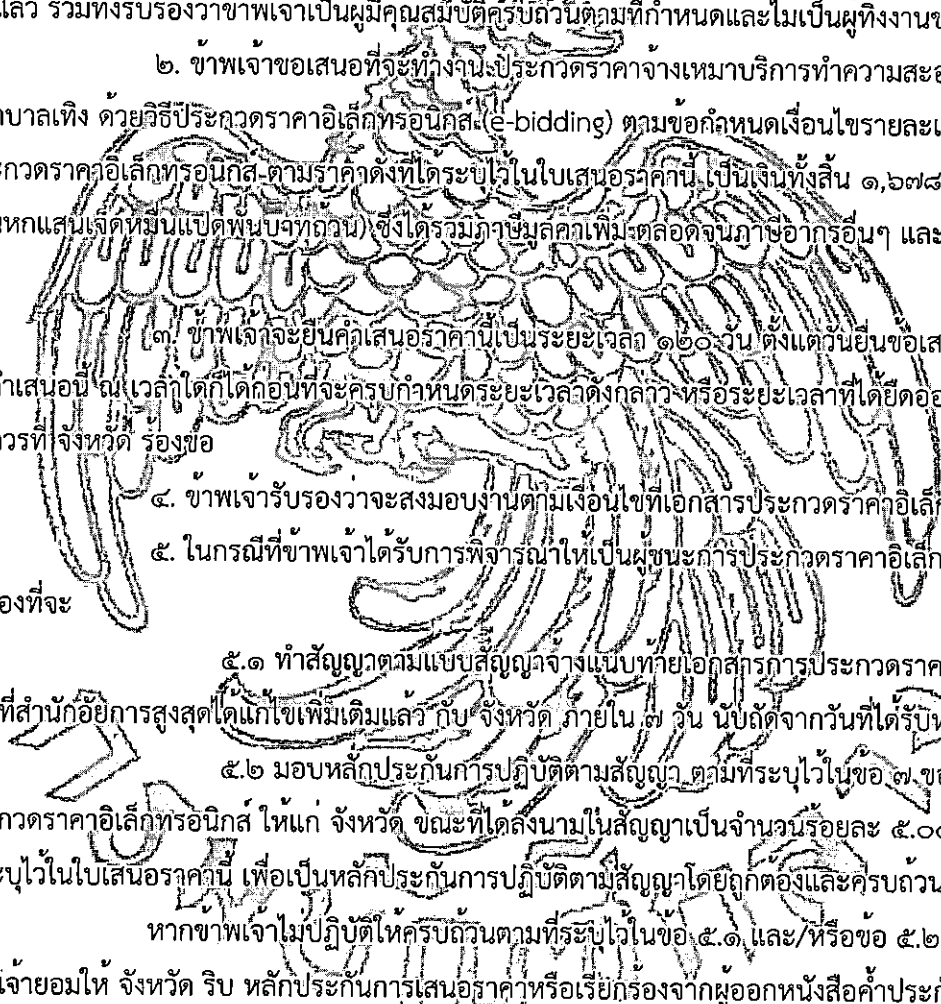 แล้ว รวมทั้งรับรองว่าข้าพเจ้าเป็นผู้มีคุณสมบัติครบถ้วนตามที่กำหนดและไม่เป็นผู้ทิ้งงานข
๒. ข้าพเจ้าขอเสนอที่จะทำงาน ประกวดราคาจ้างเหมาบริการทำความสะอ
บาลเทิง ด้วยวิธีประกวดราคาอิเล็กทรอนิกส์ (e-bidding) ตามข้อกำหนดเงื่อนไขรายละเ
ะกวดราคาอิเล็กทรอนิกส์ ตามราคาดังที่ได้ระบุไว้ในใบเสนอราคานี้ เป็นเงินทั้งสิ้น ๑,๖๗๘
นหกแสนเจ็ดหมื่นแปดพันบาทถ้วน) ซึ่งได้รวมภาษีมูลค่าเพิ่ม ตลอดจนภาษีอากรอื่นๆ และ
๓. ข้าพเจ้าจะยืนคำเสนอราคานี้เป็นระยะเวลา ๑๒๐ วัน ตั้งแต่วันยื่นข้อเส
ำเสนอนี้ ณ เวลาใดก็ได้ก่อนที่จะครบกำหนดระยะเวลาดังกล่าว หรือระยะเวลาที่ได้ยืดออ
ควรที่ จังหวัด ร้องขอ
๔. ข้าพเจ้ารับรองว่าจะส่งมอบงานตามเงื่อนไขที่เอกสารประกวดราคาอิเล็ก
๕. ในกรณีที่ข้าพเจ้าได้รับการพิจารณาให้เป็นผู้ชนะการประกวดราคาอิเล็ก
องที่จะ
๕.๑ ทำสัญญาตามแบบสัญญาจ้างแนบท้ายเอกสารการประกวดราค
ที่สำนักอัยการสูงสุดได้แก้ไขเพิ่มเติมแล้ว กับ จังหวัด ภายใน ๗ วัน นับถัดจากวันที่ได้รับห
๕.๒ มอบหลักประกันการปฏิบัติตามสัญญา ตามที่ระบุไว้ในข้อ ๗ ขอ
กวดราคาอิเล็กทรอนิกส์ ให้แก่ จังหวัด ขณะที่ได้ลงนามในสัญญาเป็นจำนวนร้อยละ ๕.๐๐
ะบุไว้ในใบเสนอราคานี้ เพื่อเป็นหลักประกันการปฏิบัติตามสัญญาโดยถูกต้องและครบถ้วน
หากข้าพเจ้าไม่ปฏิบัติให้ครบถ้วนตามที่ระบุไว้ในข้อ ๕.๑ และ/หรือข้อ ๕.๒
เจ้ายอมให้ จังหวัด ริบ หลักประกันการเสนอราคาหรือเรียกร้องจากผู้ออกหนังสือค้ำประก